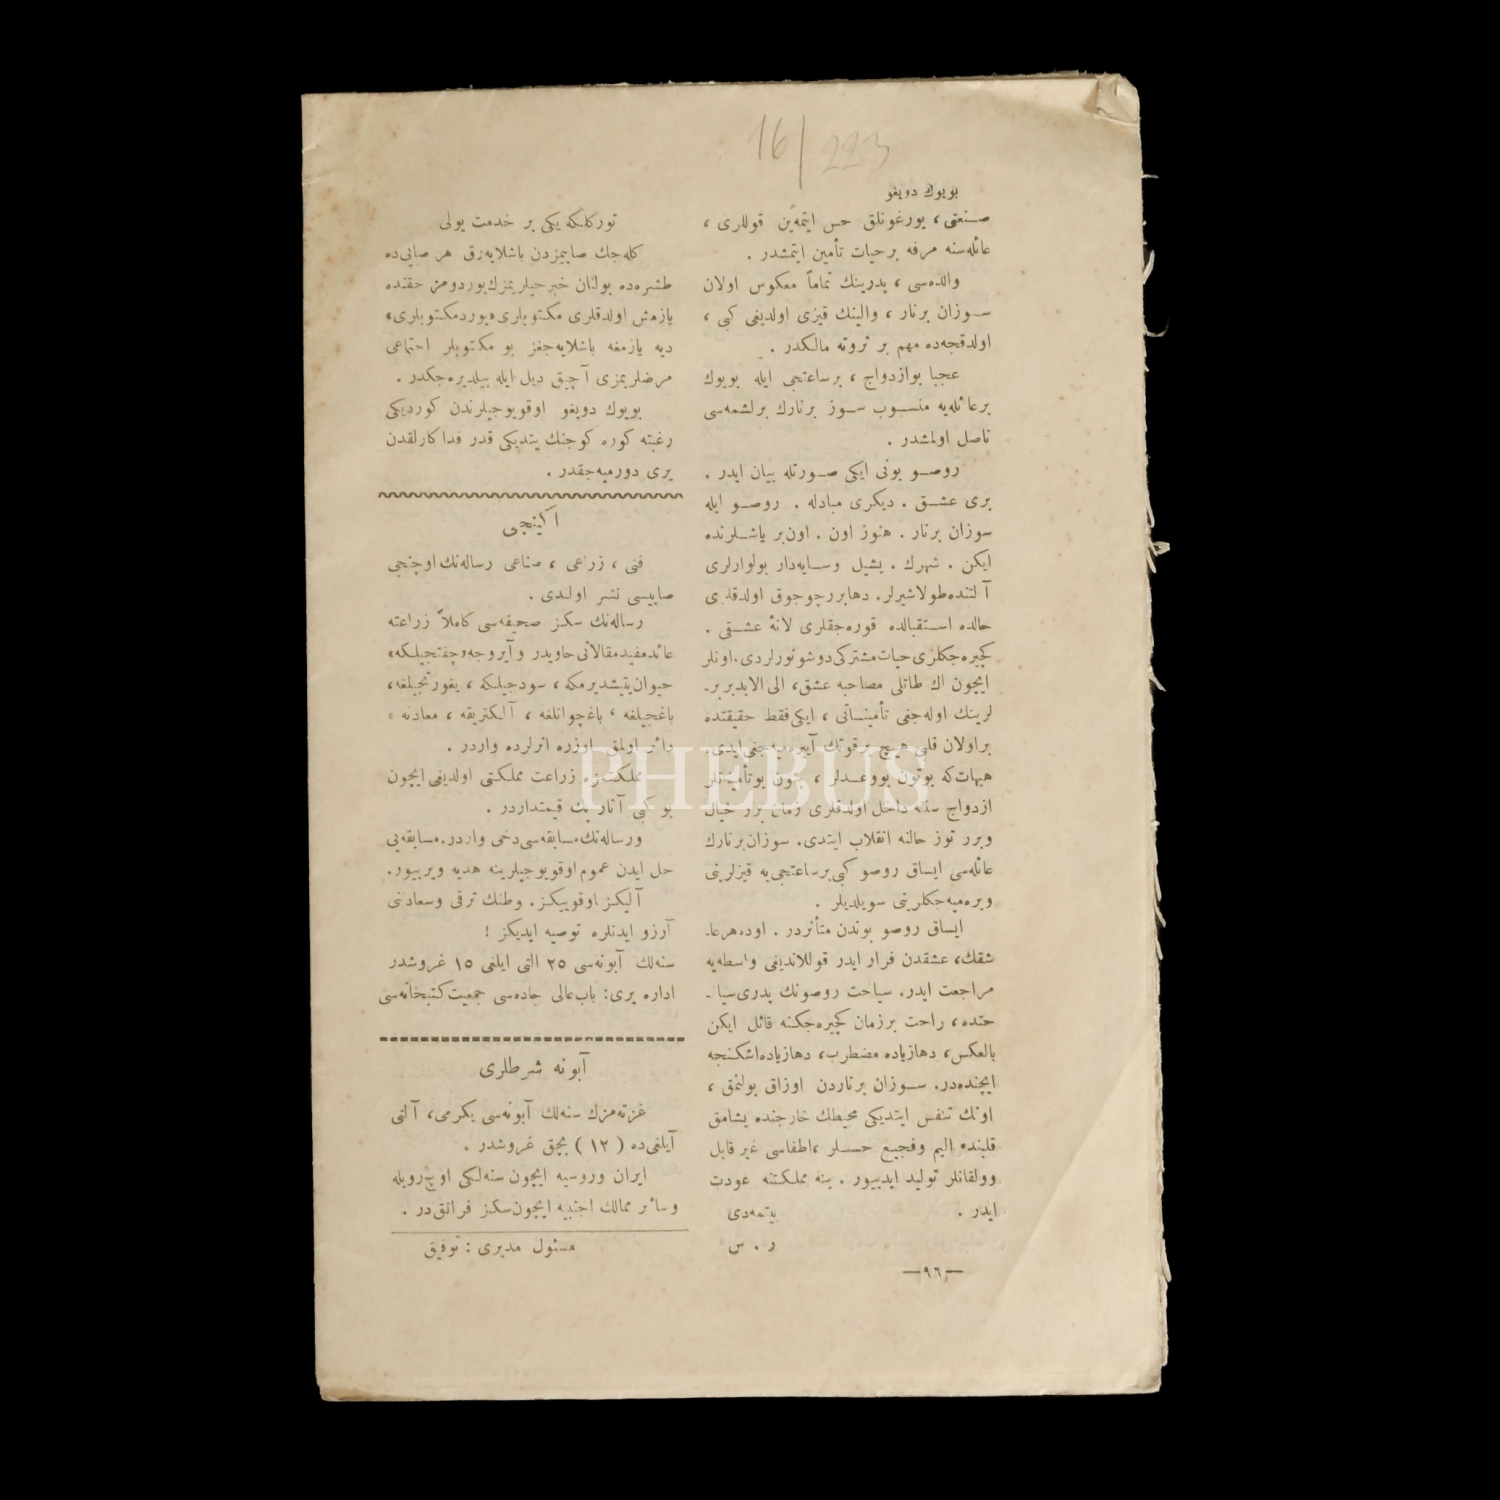 16/223
بویوك دویغو
صنعتی، یورغونلق حس ایتمه‌ین قوللری،
عائله‌سنه مرفه برحیات تأمین ایتمشدر.
والده‌سی، پدرینك تماماً معكوس اولان
سوزان برنار، والینك قیزی اولدیغی كبی،
اولدقجه‌ده مهم بر ثروته مالكدر.
عجبا بوازدواج، برساعتجی ایله بویوك
برعائله‌یه منسوب سوز برنارك برلشمه‌سی
ناصل اولمشدر.
روصو بونی ایكی صورتله بیان ایدر.
بری عشق. دیكری مبادله. روصو ایله
سوزان برنار. هنوز اون. اون‌بر یاشلرنده
ایكن. شهرك. یشیل وسایه‌دار بولوارلری
آلتنده‌طولاشیرلر. دهابررچوجوق اولدقلری
حالده استقبالده قوره‌جقلری لانهٔ عشقی.
كچیره‌جكلری حیات‌مشتركی‌دوشونورلردی.اونلر
ایچون اك طاتلی مصاحبه عشق، الی الابدبربر-
لرینك اوله‌جغی تأمیناتی، ایكی‌فقط حقیقتده
براولان قلبی هیچ برقوتك آییره‌میه‌جغی‌ایدی.
هیهات‌كه بوتون بووعدلر، بوتون بوتأمیناتلر
ازدواج سننه داخل اولدقلری زمان برر خیال
وبرر توز حالنه انقلاب ایتدی. سوزان‌برنارك
عائله‌سی ایساق روصو كبی‌برساعتجی‌یه قیزلرینی
ویره‌میه‌جكلرینی سویلدیلر.
ایساق روصو بوندن متأثردر. اوده‌هرعا-
شقك، عشقدن فرار ایدر قوللاندیغی واسطه‌یه
مراجعت ایدر. سیاحت روصونك پدری‌سیا-
حتده، راحت برزمان كچیره‌جكنه قائل ایكن
بالعكس، دهازیاده مضطرب، دهازیاده‌اشكنجه
ایچنده‌در. سوزان برناردن اوزاق بولنمق،
اونك تنفس ایتدیكی محیطك خارجنده یشامق
قلبنده الیم وفجیع حسلر،اطفاسی غیرقابل
وولقانلر تولید ایدییور. ینه مملكتنه عودت
ایدر. بیتمه‌دی
ر. س
—٩٦—
توركلكه یكی بر خدمت یولی
كله‌جك صاییمزدن باشلایه‌رق هر صاییده
طشره‌ده بولنان خبرجیلریمزك‌یوردومز حقنده
یازمش اولدقلری مكتوبلری «یوردمكتوبلری»
دیه یازمغه باشلایه‌جغز بو مكتوبلر احتماعی
مرضلریمزی آچیق دیل ایله بیلدیره‌جكدر.
بویوك دویغو اوقویوجیلرندن كوردیكی
رغبته كوره كوجنك یتدیكی قدر فداكارلقدن
یری دورمیه‌جقدر.
اكینجی
فنی، زراعی، صناعی رساله‌نك اوچنجی
صاییسی نشر اولندی.
رساله‌نك سكز صحیفه‌سی كاملاً زراعته
عائدمفیدمقالاتی‌حاویدر وآیروجه«چفتجیلكه»
حیوان‌یتیشدیرمكه، سودجیلكه، یغورتجیلغه،
باغجیلغه، باغچوانلغه، آلكتریقه، معادنه»
دائر اولمق اوزره اثرلرده واردر.
مملكتمزه زراعت مملكتی اولدیغی ایچون
بو كبی آثار پك قیمتداردر.
ورساله‌نك‌مسابقه‌سی‌دخی واردر.مسابقه‌یی
حل ایدن عموم اوقویوجیلرینه هدیه ویرییور.
آلیكز اوقوییكز. وطنك ترقی وسعادتنی
آرزو ایدنلره توصیه ایدیكز!
سنه‌لك آبونه‌سی ٢٥ التی ایلغی ١٥ غروشدر
اداره یری: باب‌عالی جاده‌سی جمعیت‌كتبخانه‌سی
آبونه شرطلری
غزته‌مزك سنه‌لك آبونه‌سی یكرمی، آلتی
آیلغی‌ده (١٢) بچق غروشدر.
ایران وروسیه ایچون سنه‌لكی اوچ‌روبله
وسائر ممالك اجنبیه ایچون‌سكز فرانق‌در.
مسئول مدیری: توفیق
PHEBUS